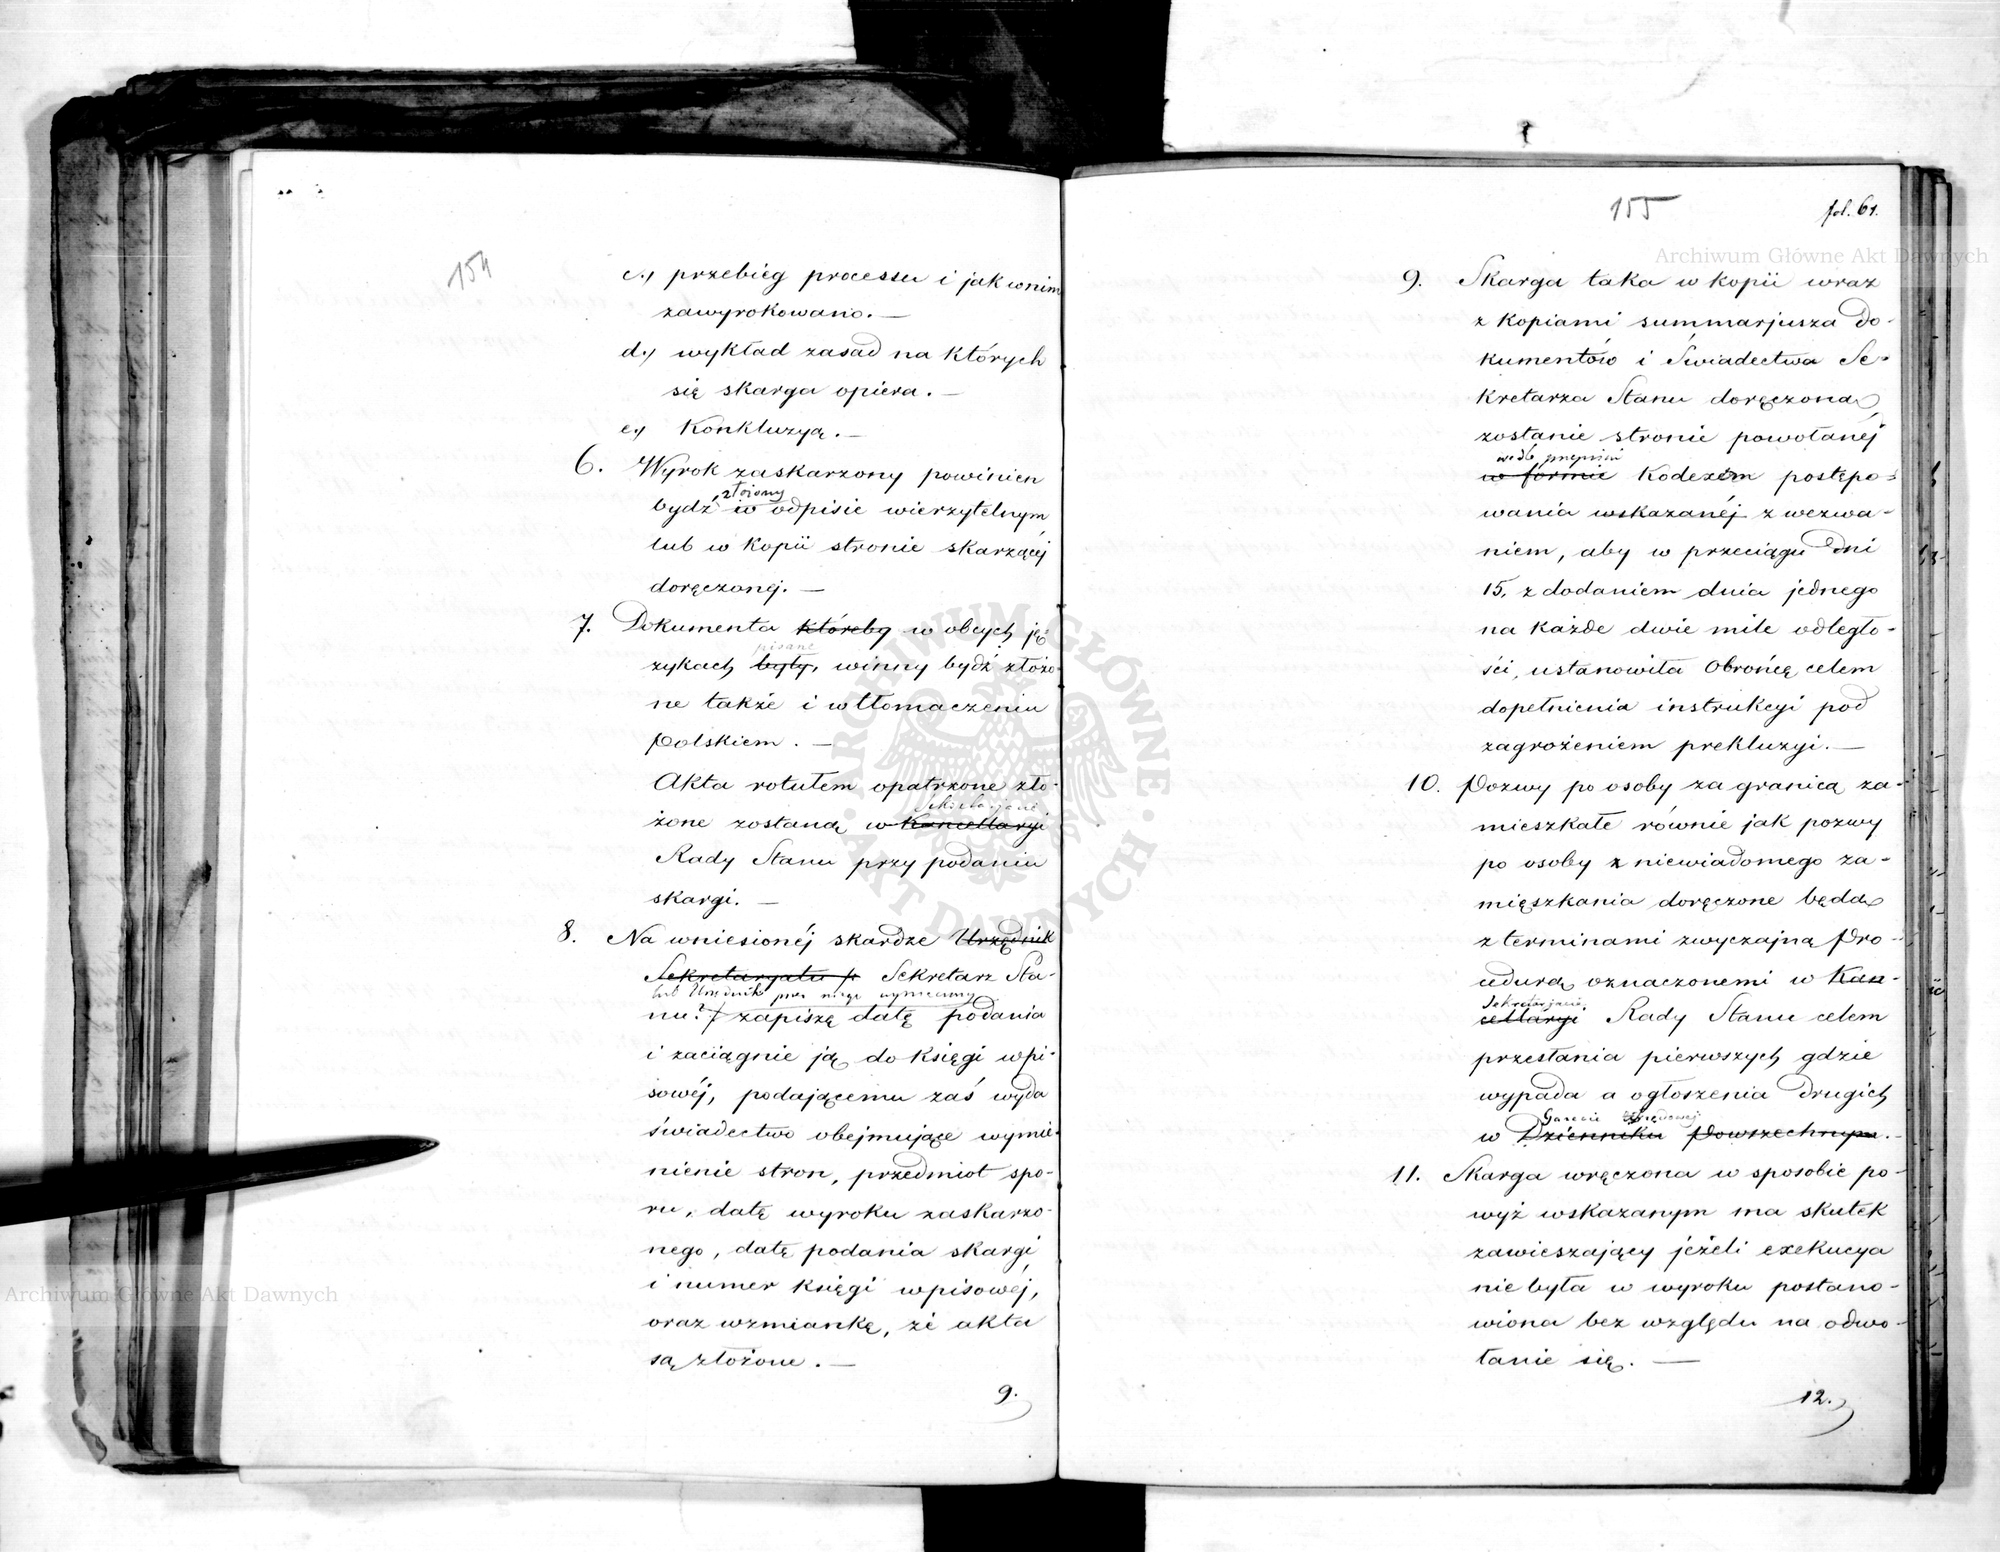 154
c.) przebieg processu i jak w nim
zawyrokowano. —
d.) wykład zasad na których
się skarga opiera. —
e.) Konkluzyą. —
6. Wyrok zaskarzony powinien
złożony
bydź w odpisie wierzytelnym
lub w kopii stronie skarzącéj
doręczonéj. —
7. Dokumenta któreby w obcych ję-
pisane
zykach były, winny bydź złożo-
ne także i w tłomaczeniu
polskiem. —
Akta rotułem opatrzone zło-
Sekretarjacie
żone zostaną w Kancellaryi
Rady Stanu przy podaniu
skargi. —
8. Na wniesionéj skardze Urzędnik
Sekretaryatu p Sekretarz Sta-
lub Urzędnik przez niego wyznaczony
nu zapiszę datę podania
i zaciągnie ją do księgi wpi-
sowéj, podającemu zaś wyda
świadectwo obejmujące wymie-
nienie stron, przedmiot spo-
ru, datę wyroku zaskarzo-
nego, datę podania skargi
i numer księgi wpisowéj,
oraz wzmiankę, że akta
są złożone. —
9.
155
fol. 61.
9. Skarga taka w kopii wraz
z kopiami summarjusza do-
kumentów i Świadectwa Se-
kretarza Stanu doręczona
zostanie stronie powołanéj
wedle przepisów
w formie Kodexem postępo-
wania wskazanéj z wezwa-
niem, aby w przeciągu dni
15, z dodaniem dnia jednego
na każde dwie mile odległo-
ści, ustanowiła Obrońcę celem
dopełnienia instrukcyi pod
zagrożeniem prekluzyi. —
10. Pozwy po osoby za granicą za-
mieszkałe równie jak pozwy
po osoby z niewiadomego za-
mięszkania doręczone będą
z terminami zwyczajną pro-
cedurą oznaczonemi w Kan-
Sekretarjacie
cellaryi Rady Stanu celem
przesłania pierwszych gdzie
wypada a ogłoszenia drugich
Gazecie Rządowej
w Dzienniku Powszechnym. —
11. Skarga wręczona w sposobie po-
wyż wskazanym ma skutek
zawieszający jeżeli exekucya
nie była w wyroku postano-
wiona bez względu na odwo-
łanie się. —
12.
Archiwum Główne Akt Dawnych
Archiwum Główne Akt Dawnych
ARCHIWUM GŁÓWNE AKT DAWNYCH